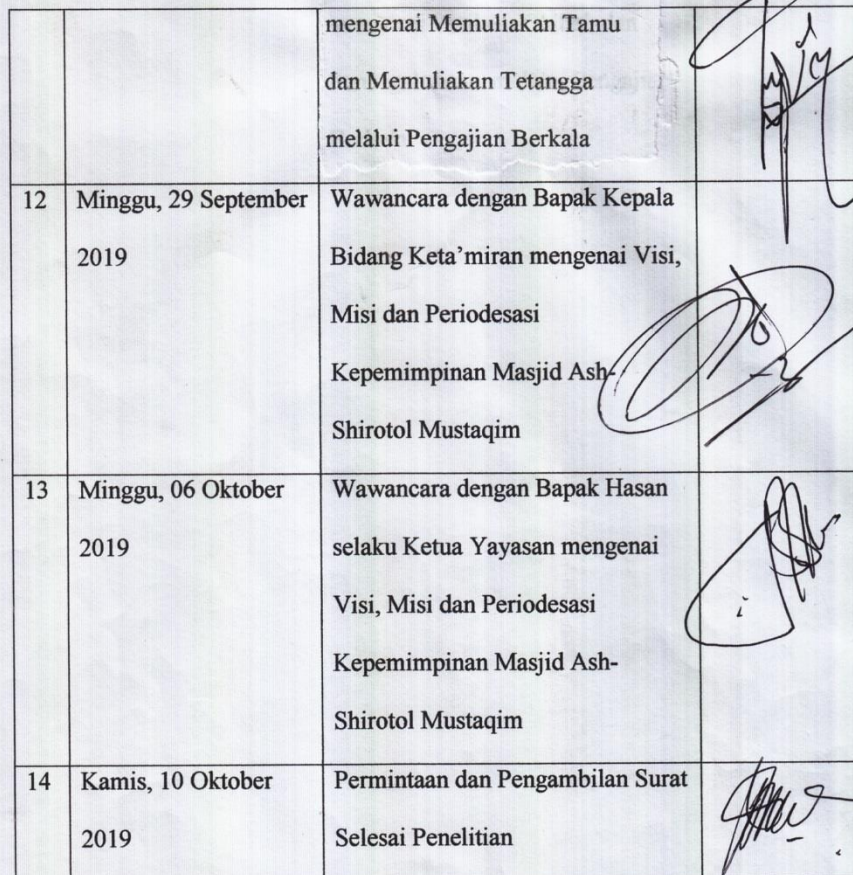 mengenai Memuliakan Tamu
dan Memuliakan Tetangga
melalui Pengajian Berkala
12 Minggu, 29 September Wawancara dengan Bapak Kepala
2019 Bidang Keta’miran mengenai Visi,
Misi dan Periodesasi
Kepemimpinan Masjid Ash-
Shirotol Mustaqim
13 Minggu, 06 Oktober Wawancara dengan Bapak Hasan
2019 selaku Ketua Yayasan mengenai
Visi, Misi dan Periodesasi
Kepemimpinan Masjid Ash-
Shirotol Mustaqim
14 Kamis, 10 Oktober Permintaan dan Pengambilan Surat
2019 Selesai Penelitian